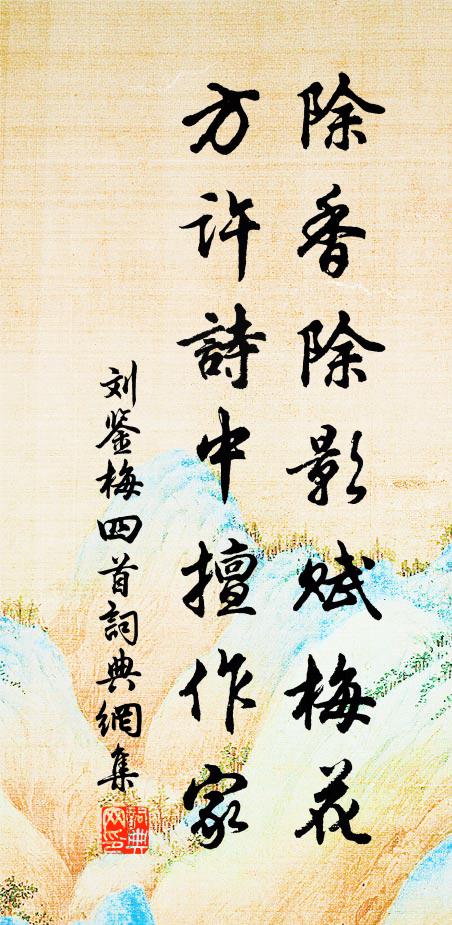 除香除影赋梅花
方许詩中擅作家
刘鉴梅四首詞典網集
詞典网印